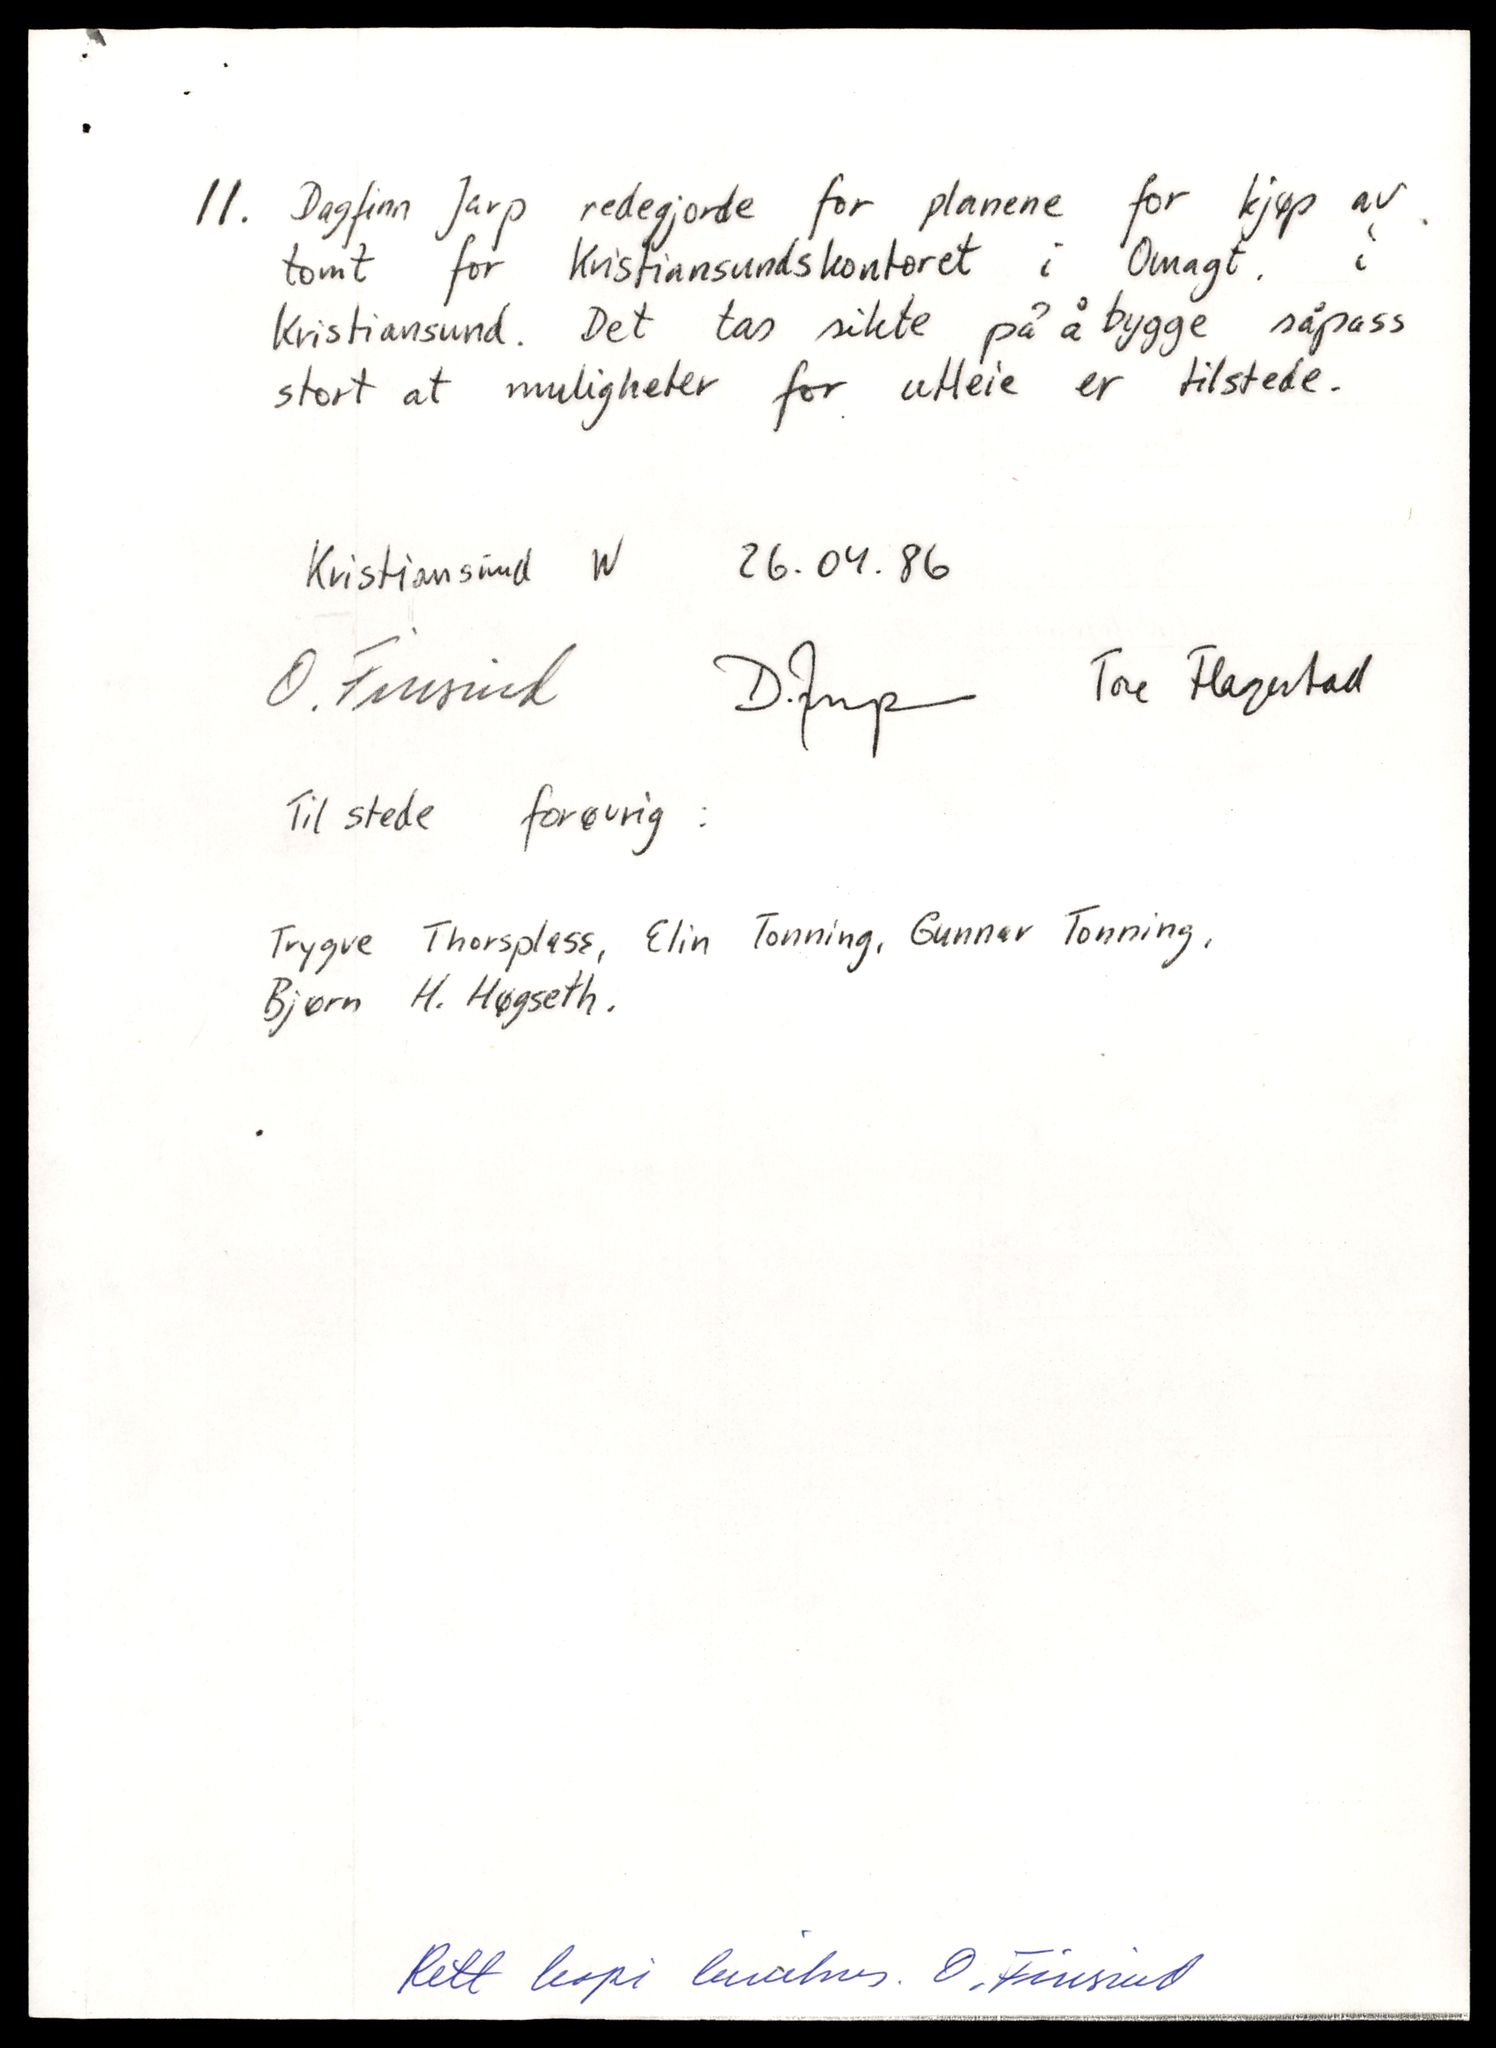 11. Dagfinn Jarp redegjorde for planene for kjøp av
tomt for Kristiansundskontoret i Omagt. i
Kristiansund. Det tas sikte på å bygge såpass
stort at muligheter for utleie er tilstede.
Kristiansund N 26.04.86
O. Finsrud D. Jarp Tore Flagestad
Til stede forøvrig :
Trygve Thorsplass, Elin Tonning, Gunnar Tonning,
Bjørn H. Høgseth.
Rett kopi bevitnes. O. Finsrud